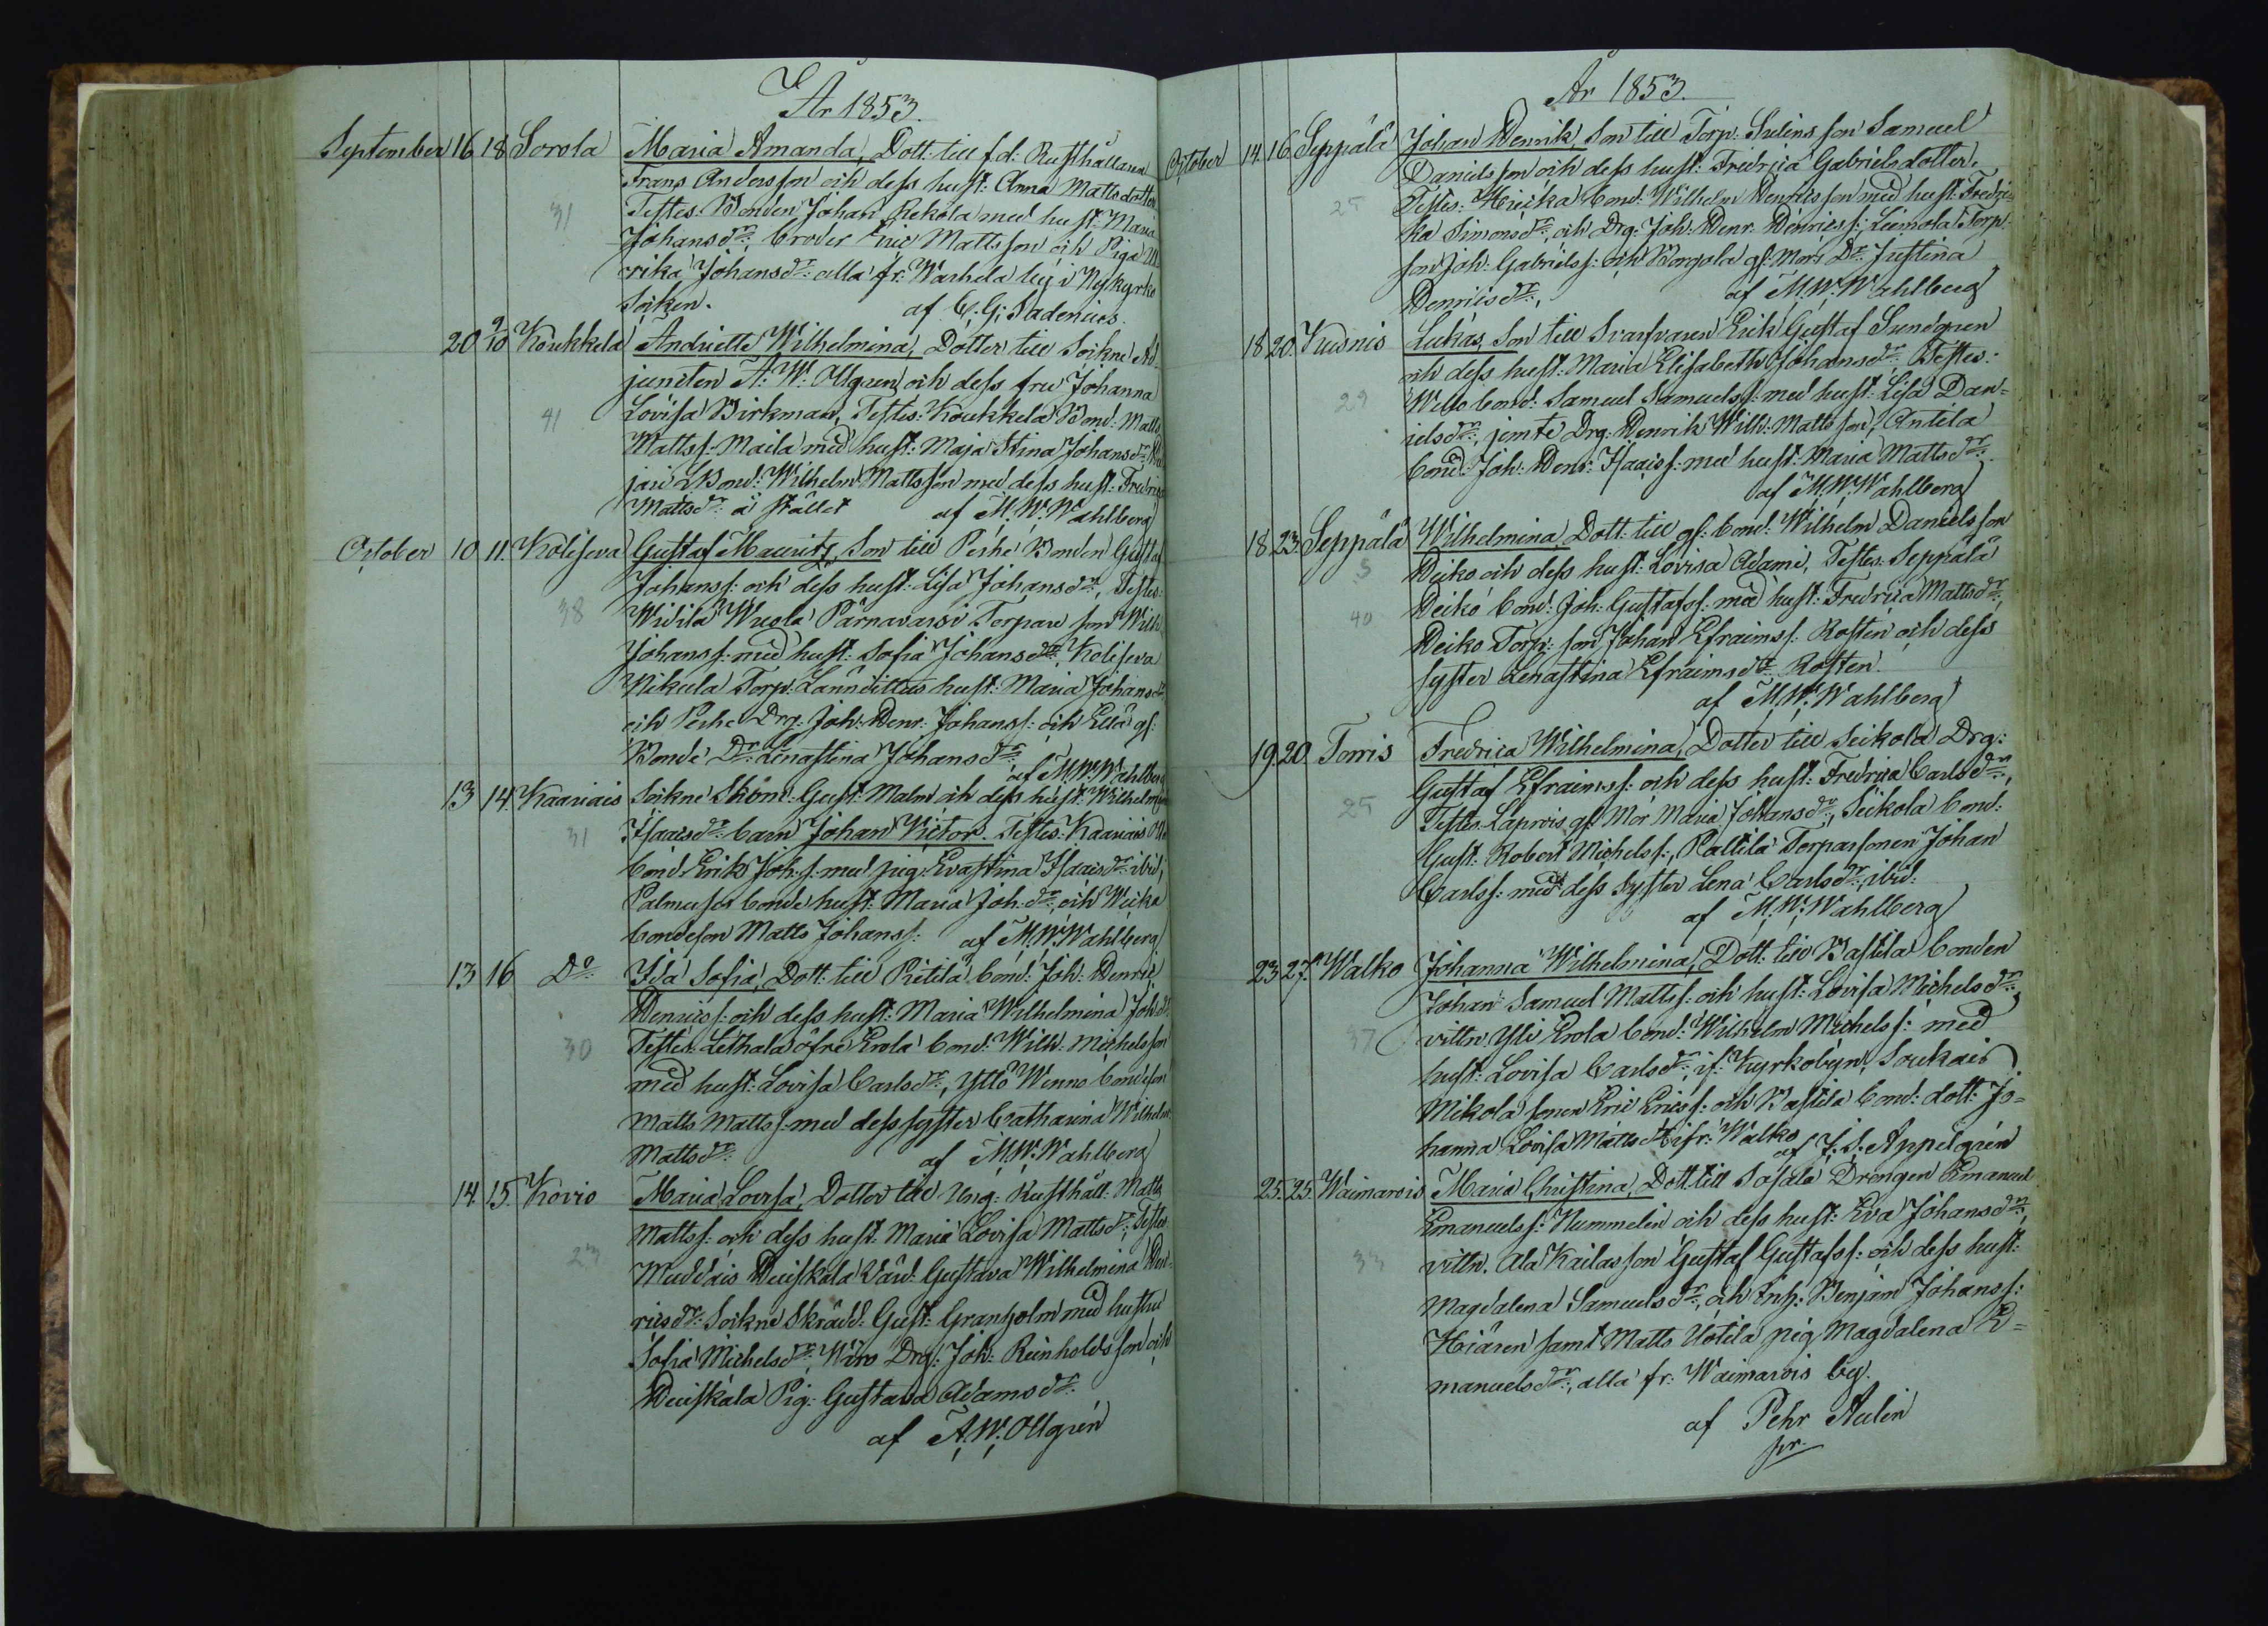 År 1853.
September 16 18 Sorola Maria Amanda, Dott: till f.d. Rusthållaren
Frans Andersson och dess hust: Anna Mattsdotter
31 Testes: Bonden Johan Rekola med hust: Maria
Johansdr:, broder Eric Mattsson och Piga Ul
rika Johansdr: alla fr: Warhela by i Nykyrko
Socken. af C. G. Sadenius.
20 2/10 Koukkela Andriette Wilhelmina, Dotter till Sockne Ad-
juncten A. W. Ollgren och dess fru Johanna
41 Lovisa Birkman, Testes: Koukkela Bond: Matts
Mattss: Maila med hust: Maja Stina Johansdr:
jari Bond: Wilhelm Mattsson med dess hust: Fredrica
Mattsdr: å stället af M. W. Wahlberg
October 10 11. Kolseva Gustaf Mauritz, Son till Peshe Bonden Gustaf
Johanss: och dess hust: Lisa Johansdr:, Testes:
38 Widila Wuola Pärnavarsi Torpare son Wilh:
Johanss: med hust: Sofia Johansdr: Koliseva
Nikula Torp: hust: Maria Johansdr:
och Peshe Drg: Joh: Henr: Johanss: och Ella gf:
Bonde Dr: Lenastina Johansdr:
af M. W. Wahlberg
13 14. Kaariais Sockne Skom: Gust: Malm och dess hust: Wilhelmina
31 Isaacsdr: barn Johan Victor. Testes: Kaariais
bond: Erik Joh:s: med pig: Evastina Isaacsdr: ibid;
Palmusos bonde hust: Maria Joh:dr:, och Weika
bondeson Matts Johanss: af M. W. Wahlberg
13 16 Do: Ida Sofia, Dott: till Pietilä bond: Joh: Henric
Henricss: och dess hust: Maria Wilhelmina Joh:dr:
30 Testes: Lethala öfre Erola bond: Wilh: Michelsson
med hust: Lovisa Carlsdr:, Yttö Wenno bondeson
Matts Mattss: med dess syster Catharina Wilhelm:
Mattsdr: af M. W. Wahlberg
14. 15. Kovio Maria Lovisa, Dotter till Ung: Rusthåll: Matts
Mattss: och dess hust: Maria Lovisa Mattsdr:, Testes:
23 Muddais Huiskala Värd: Gustava Wilhelmina Hen-
ricsdr: Sockne Skrädd: Gust: Granholm med hustru
Sofia Michelsdr:, Wiro Drg: Joh: Reinholdsson och
Huiskala Pig: Gustava Adamsdr:
af A. W. Ollgrén
År 1853.
October 14. 16. Seppälä Johan Henrik, Son till Torp: Sulins son Samuel
Danielsson och dess hust: Fredrica Gabrielsdotter.
25 Testes: Heicka bond: Wilhelm Henricsson med hust: Fredri-
ka Simonsdr:, och Drg: Joh: Henr: Henricss:, Leemola Torp:
son Joh: Gabrielss: och Borgola gf: Mors Dr: Justina
Henricsdr:, af M. W. Wahlberg
18. 20. Kuisnis Lukas, Son till Svarfvaren Erik Gustaf Sundgren
och dess hust: Maria Elisabeth Johansdr: Testes:
29 bond: Samuel Samuelss: med hust: Lisa Dan-
ielsdr:, jemte Drg: Henrik Wilh: Mattsson, Antila
bond: Joh: Henr: Isaacss: med hust: Maria Mattsdr:
af M. W. Wahlberg
18. 23. Seppälä Wilhelmina, Dott: till gf: bond: Wilhelm Danielsson
5 Heiko och dess hust: Lovisa Adami, Testes: Seppälä
40 Heiko bond: Joh: Gustafss: med hust: Fredrica Mattsdr:,
Heiko Torp: son Johan Efraimss: Rosten och dess
syster Lenastina Efraimsdr: Rosten.
af M. W. Wahlberg
19. 20. Torris Fredrica Wilhelmina, Dotter till Seikola Drg:
Gustaf Efraimss: och dess hust: Fredrica Carlsdr:,
25 Testes: Laprois gf: Mor Maria Johansdr:, Seikola bond:
Gust: Robert Michelss:, Paltila Torparsonen Johan
Carlss: med dess syster Lena Carlsdr:, ibid:
af M. W. Wahlberg
23. 27. Walko Johanna Wilhelmina, Dott: till Bastila bonden
Johan Samuel Mattss: och hust: Lovisa Michelsdr:
37 vittn: Yli Erola bond: Wilhelm Michelss: med
hust: Lovisa Carlsdr: if: Kyrkobyn, Soukais
Mikola sonen Eric Ericss: och Bastila bond: dott: Jo-
hanna Lovisa Matts Hs: fr: Walko af J. S. Appelgrén
25. 25. Waimarois Maria Christina, Dott: till Sasala Drengen Emanuel
Emanuelss: Nummelin och dess hust: Eva Johansdr:,
33 vittn: Ala Kailasson Gustaf Gustafss: och dess hust:
Magdalena Samuelsdr:, och Inh: Benjam Johanss:
Hiären samt Matts Uotila pig: Magdalena E-
manuelsdr:, alla fr: Waimarois by.
af Pehr Aulin
pr.